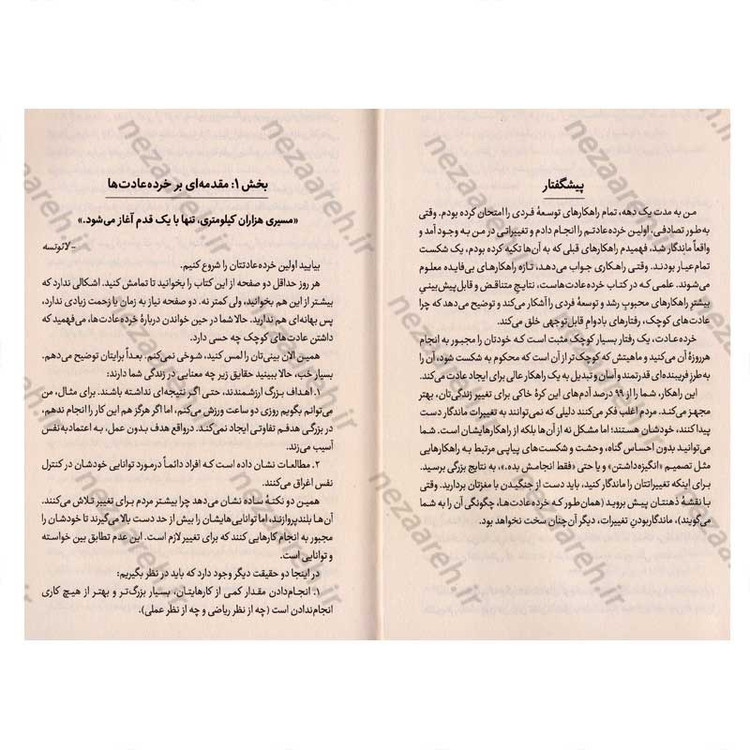 پیشگفتار
من به مدت یک دهه، تمام راهکارهای توسعهٔ فردی را امتحان کرده بودم. وقتی
به‌طور تصادفی، اولین خرده‌عادتم را انجام دادم و تغییراتی در من به وجود آمد و
واقعاً ماندگار شد، فهمیدم راهکارهای قبلی که به آن‌ها تکیه کرده بودم، یک شکست
تمام‌عیار بودند. وقتی راهکاری جواب می‌دهد، تازه راهکارهای بی‌فایده معلوم
می‌شوند. علمی که در کتاب خرده‌عادت‌هاست، نتایج متناقض و قابل‌پیش‌بینیِ
بیشتر راهکارهای محبوبِ رشد و توسعهٔ فردی را آشکار می‌کند و توضیح می‌دهد که چرا
عادت‌های کوچک، رفتارهای بادوام قابل‌توجهی خلق می‌کند.
خرده‌عادت، یک رفتار بسیار کوچک مثبت است که خودتان را مجبور به انجام
هرروزهٔ آن می‌کنید و ماهیتش که کوچک‌تر از آن است که محکوم به شکست شود، آن را
به‌طرز فریبنده‌ای قدرتمند و آسان و تبدیل به یک راهکار عالی برای ایجاد عادت می‌کند.
این راهکار، شما را از ۹۹ درصد آدم‌های این کرهٔ خاکی برای تغییر زندگی‌تان، بهتر
مجهز می‌کند. مردم اغلب فکر می‌کنند دلیلی که نمی‌توانند به تغییرات ماندگار دست
پیدا کنند، خودشان هستند؛ اما مشکل نه از آن‌ها بلکه از راهکارهایشان است. شما
می‌توانید بدون احساس گناه، وحشت و شکست‌های پیاپی مرتبط به راهکارهایی
مثل تصمیم «انگیزه‌داشتن» و یا حتی «فقط انجامش بده.»، به نتایج بزرگی برسید.
برای اینکه تغییراتتان ماندگار شوند، باید دست از جنگیدن با مغزتان بردارید. وقتی
با نقشهٔ ذهنتان پیش بروید (همان‌طور که خرده‌عادت‌ها، چگونگی آن را به شما
می‌گویند)، ماندگاربودنِ تغییرات، دیگر آن‌چنان سخت نخواهد بود.
بخش ۱: مقدمه‌ای بر خرده‌عادت‌ها
«مسیری هزاران کیلومتری، تنها با یک قدم آغاز می‌شود.»
- لائوتسه
بیایید اولین خرده‌عادتتان را شروع کنیم.
هر روز حداقل دو صفحه از این کتاب را بخوانید تا تمامش کنید. اشکالی ندارد که
بیشتر از این هم بخوانید، ولی کمتر نه. دو صفحه نیاز به زمان یا زحمت زیادی ندارد،
پس بهانه‌ای هم ندارید. حالا شما در حین خواندن دربارهٔ خرده‌عادت‌ها، می‌فهمید که
داشتن عادت‌های کوچک چه حسی دارد.
همین الان بینی‌تان را لمس کنید. شوخی نمی‌کنم. بعداً برایتان توضیح می‌دهم.
بسیار خب، حالا ببینید حقایق زیر چه معنایی در زندگی شما دارند:
۱. اهداف بزرگ ارزشمندند، حتی اگر نتیجه‌ای نداشته باشند. برای مثال، من
می‌توانم بگویم روزی دو ساعت ورزش می‌کنم، اما اگر هرگز هم این کار را انجام ندهم،
در بزرگی هدفم تفاوتی ایجاد نمی‌کند. درواقع هدف بدون عمل، به اعتمادبه‌نفس
آسیب می‌زند.
۲. مطالعات نشان داده است که افراد دائماً درمورد توانایی خودشان در کنترل
نفس اغراق می‌کنند.
همین دو نکتهٔ ساده نشان می‌دهد چرا بیشتر مردم برای تغییر تلاش می‌کنند.
آن‌ها بلندپروازند، اما توانایی‌هایشان را بیش از حد دست بالا می‌گیرند تا خودشان را
مجبور به انجام کارهایی کنند که برای تغییر لازم است. این عدم تطابق بین خواسته
و توانایی است.
در اینجا دو حقیقت دیگر وجود دارد که باید در نظر بگیریم:
۱. انجام‌دادن مقدار کمی از کارهایتان، بسیار بزرگ‌تر و بهتر از هیچ کاری
انجام‌ندادن است (چه از نظر ریاضی و چه از نظر عملی).
nezaareh.ir
nezaareh.ir
nezaareh.ir
nezaareh.ir
nezaareh.ir
nezaareh.ir